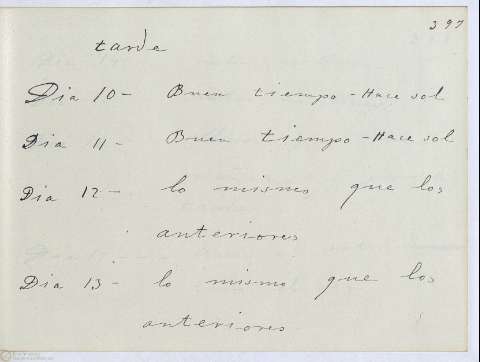 397
tarde
Dia 10- Buen tiempo - Hace sol
Dia 11- Buen tiempo - Hace sol
Dia 12- lo mismo que los
anteriores
Dia 13- lo mismo que los
anteriores